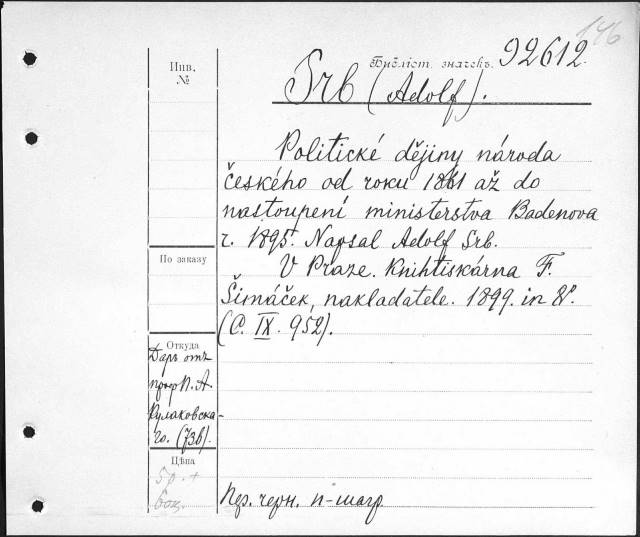 146
Библіот. значекъ. 92612.
Инв.
№
Srb (Adolf).
Politické dějiny národa
českého od roku 1861 až do
nastoupení ministerstva Badenova
r. 1895. Napsal Adolf Srb.
V Praze. Knihtiskárna F.
Šimáček, nakladatele. 1899. in 8º.
(C. IX. 952).
По заказу
Откуда
Даръ отъ
проф. П. А.
Кулаковска-
го. (73b).
Цѣна
5 р. +
Пер. черн. п-шагр.